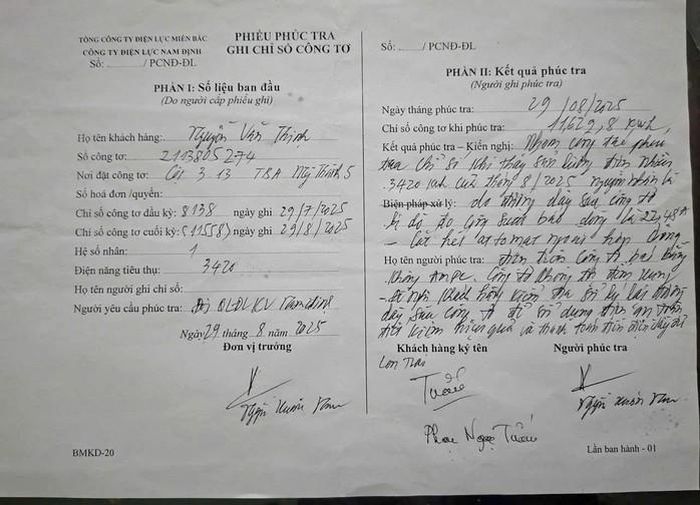 TỔNG CÔNG TY ĐIỆN LỰC MIỀN BẮC
CÔNG TY ĐIỆN LỰC NAM ĐỊNH
Số: ....../ PCNĐ-ĐL
PHIẾU PHÚC TRA
GHI CHỈ SỐ CÔNG TƠ
PHẦN I: Số liệu ban đầu
(Do người cấp phiếu ghi)
Họ tên khách hàng: Nguyễn Văn Thịnh
Số công tơ: 2113805274
Nơi đặt công tơ: Cột 3.13 TBA Mỹ Thịnh 5
Số hoá đơn /quyển:
Chỉ số công tơ đầu kỳ: 8138 ngày ghi 29/7/2025
Chỉ số công tơ cuối kỳ: (11558) ngày ghi 29/8/2025
Hệ số nhân: 1
Điện năng tiêu thụ: 3420
Họ tên người ghi chỉ số:
Người yêu cầu phúc tra: QLĐLKV Nam Định
Ngày 29 tháng 8 năm 2025
Đơn vị trưởng
Nguyễn Xuân
BMKD-20
Số: ....../ PCNĐ-ĐL
PHẦN II: Kết quả phúc tra
(Người ghi phúc tra)
Ngày tháng phúc tra: 29/08/2025
Chỉ số công tơ khi phúc tra: 11629,8 kwh,
Kết quả phúc tra – Kiến nghị: Nhóm công tác phúc
tra chỉ số khi thấy sản lượng điện nhiều
3420 kwh của tháng 8/2025 nguyên nhân là
Biện pháp xử lý: do đường dây sau công tơ
bị dò đo công suất báo dòng là 22,48A
- Cắt hết attomat ngoài hộp dòng
Họ tên người phúc tra: điện trên công tơ báo bằng
không ampe. Công tơ không
- Đề nghị khách hàng kiểm tra sử lý lại đường
dây sau công tơ để sử dụng điện an toàn
tiết kiệm hiệu quả và thanh toán tiền điện đầy đủ
Khách hàng ký tên
Người phúc tra
Con Trai
Tuấn
Phạm Ngọc Tuấn
Nguyễn Xuân
Lần ban hành - 01